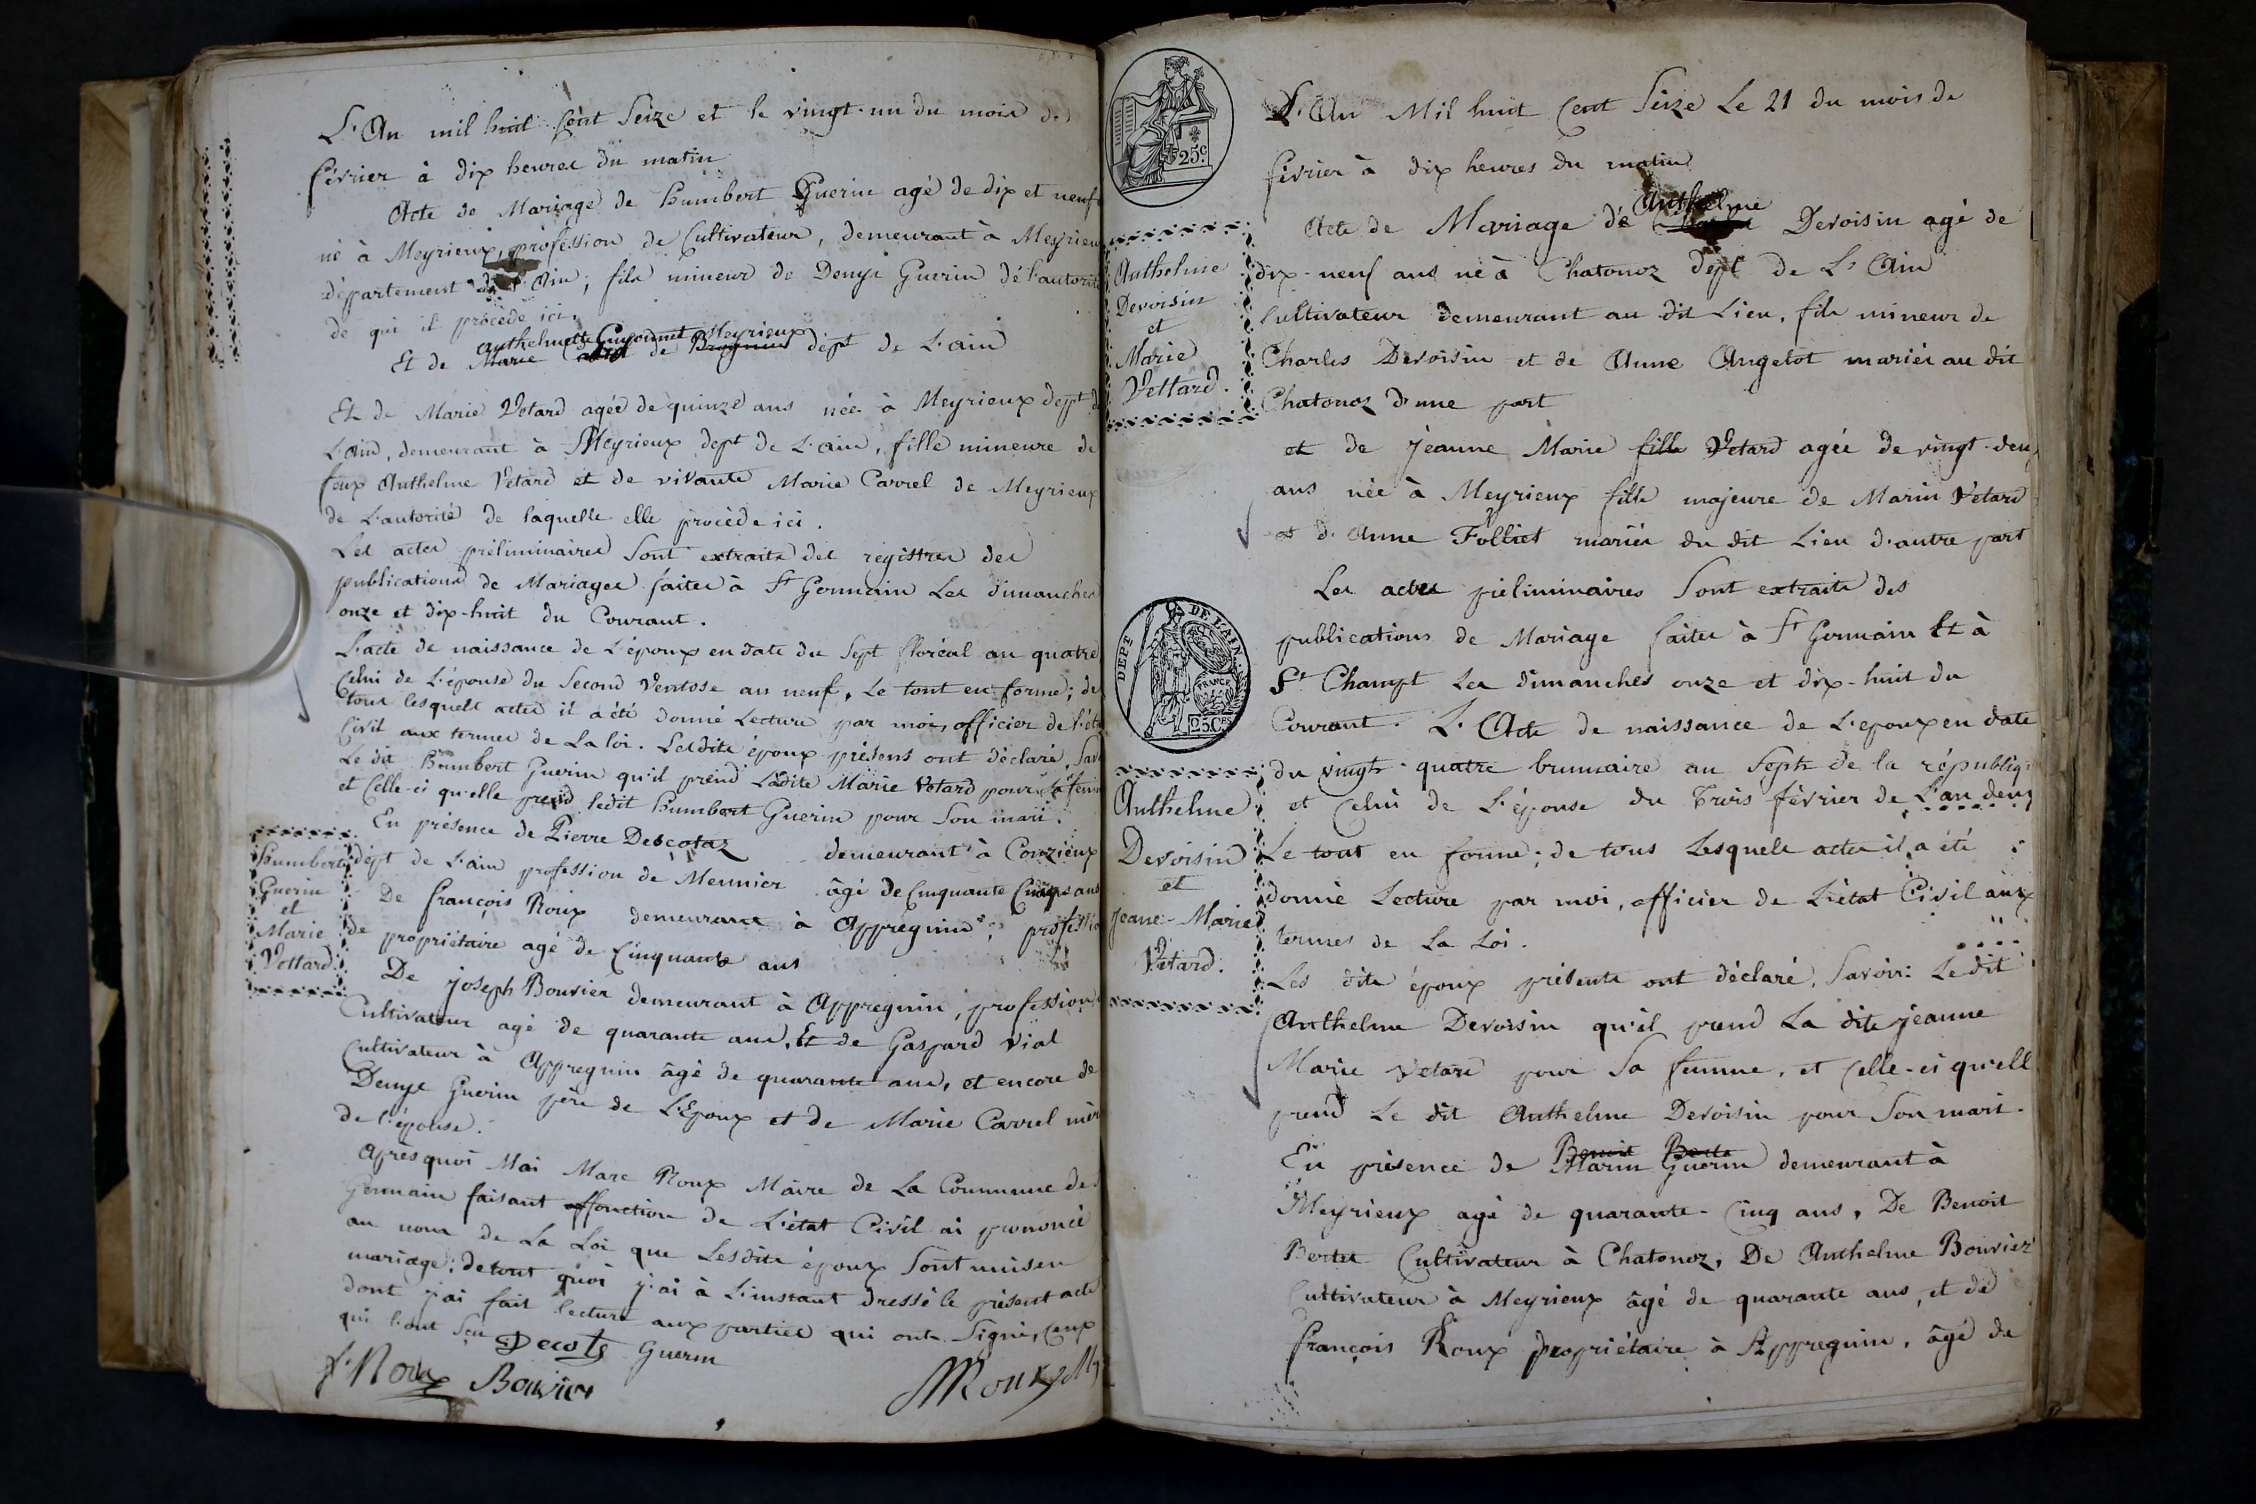 L'An mil huit Cent Seize et le vingt-un du mois de
février à dix heures du matin
Acte de Mariage de humbert Guerin agé de dix et neuf
né à Meyrieux, profession de Cultivateur, demeurant à Meyrieu
département de l'Ain; fils mineur de Denys Guerin de l'autorité
de qui il procède ici.
anthelmette Guyonnet Meyrieux
Et de Marie de Brognin dept de L'ain
Et de Marie Vetard agée de quinze ans née à Meyrieux dept de
L'ain, demeurant à Meyrieux dept de L'ain, fille mineure de
feux Anthelme Vetard et de vivante Marie Carrel de Meyrieux
de L'autorité de laquelle elle procède ici.
Les actes préliminaires Sont extraits des registres des
publications de Mariages faites à St Germain Les dimanches
onze et dix-huit du Courant.
L'acte de naissance de L'époux en date du Sept floréal an quatre
Celui de L'épouse du Second Ventose an neuf, Le tout en forme; de
tous lesquels actes il a été donné Lecture par moi, officier de l'éta
Civil aux termes de La loi. Lesdits époux présens ont déclaré, Sav
Le dit humbert Guerin qu'il prend Ladite Marie Vetard pour Sa fem
et Celle-ci qu'elle prend ledit humbert Guerin pour Son mari.
En présence de Pierre Descotaz demeurant à Conzieux
dépt de L'ain profession de Meunier âgé de Cinquante Cinq ans
De françois Roux demeurant à Appregnin, professio
de propriétaire agé de Cinquante ans
De joseph Bouvier demeurant à Appregnin, profession
Cultivateur agé de quarante ans, Et de Gaspard Vial
Cultivateur à Appregnin âgé de quarante ans, et encore de
Denys Guerin père de L'Epoux et de Marie Carrel mèr
de l'épouse.
Après quoi Moi Marc Roux Maire de La Commune de
Germain faisant offonction de L'état Civil ai prononcé
au nom de La Loi que Lesdits époux Sont unis en
mariage; de tout quoi j'ai à L'instant dressé le présent acte
dont j'ai fait lecture aux parties qui ont Signé, Ceux
qui l'ont Seu Decots Guerin
f. Roux Bouvier MRoux M
humbert
Guerin
et
Marie
Vettard.
25c.
L'An Mil huit Cent Seize Le 21 du mois de
février à dix heures du matin
Anthelme
Acte de Mariage de Devoisin agé de
dix-neuf ans né à Chatonoz dépt de L'Ain
Cultivateur demeurant au dit Lieu, fils mineur de
Charles Devoisin et de Anne Angelot mariés au dit
Chatonoz d'une part
et de jeanne Marie fille Vetard agée de vingt-deux
ans née à Meyrieux fille majeure de Marin Vetard
et d'Anne Folliet mariés du dit Lieu d'autre part
Les actes préliminaires Sont extraits des
publications de Mariage faites à St Germain Et à
St Champt Les dimanches onze et dix-huit du
Courant. L'Acte de naissance de L'epoux en date
du vingt-quatre brumaire an Sept de la républiq
et Celui de L'épouse du Trois février de L'an deux
Le tout en forme; de tous Lesquels actes il a été
donné Lecture par moi, officier de L'état Civil aux
termes de La Loi.
Les dits époux présents ont déclaré, Savoir: Le dit
Anthelme Devoisin qu'il prend La dite jeanne
Marie Vetard pour Sa femme, et Celle-ci qu'elle
prend Le dit Anthelme Devoisin pour Son mari.
Benoit Berte
En présence de Marin Guerin demeurant à
Meyrieux agé de quarante-Cinq ans, De Benoit
Bertet Cultivateur à Chatonoz, De Anthelme Bouvier
Cultivateur à Meyrieux âgé de quarante ans, et de
françois Roux propriétaire à Appregnin, âgé de
Anthelme
Devoisin
et
Marie
Vettard.
DEPT DE L'AIN.
FRANCE
25Ces
Anthelme
Devoisin
et
jeane-Marie
Vetard.